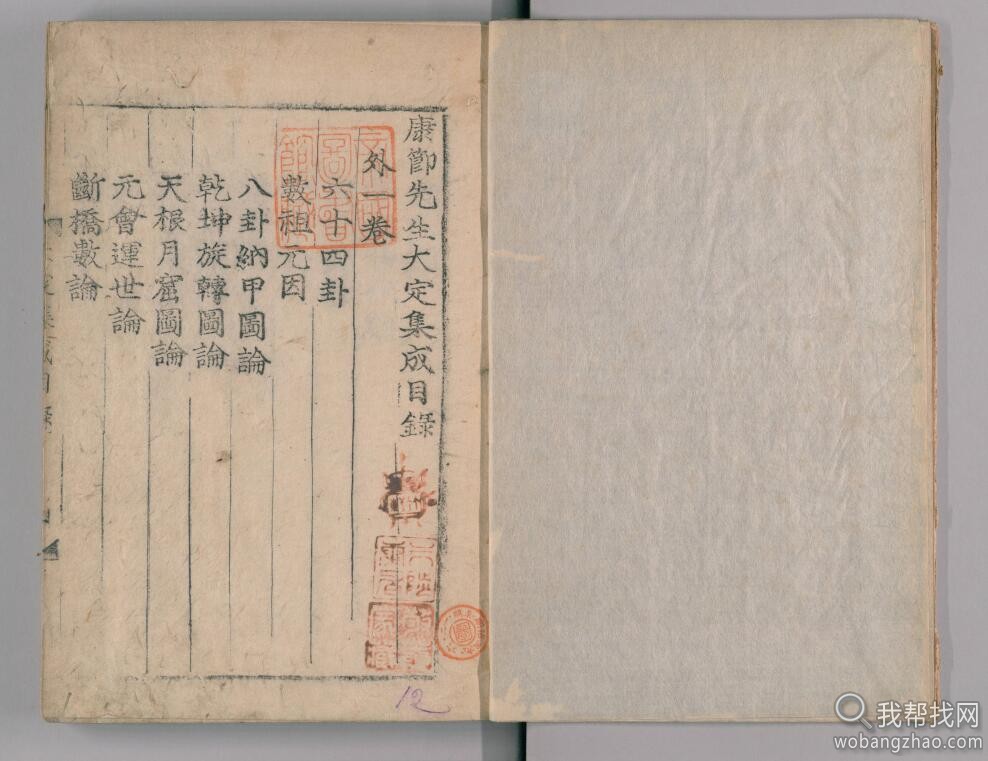 康節先生大定集成目錄
外一卷
六十四卦
數祖元因
八卦納甲圖論
乾坤旋轉圖論
天根月窟圖論
元會運世論
斷橋數論
12
我帮找网
wobangzhao.com